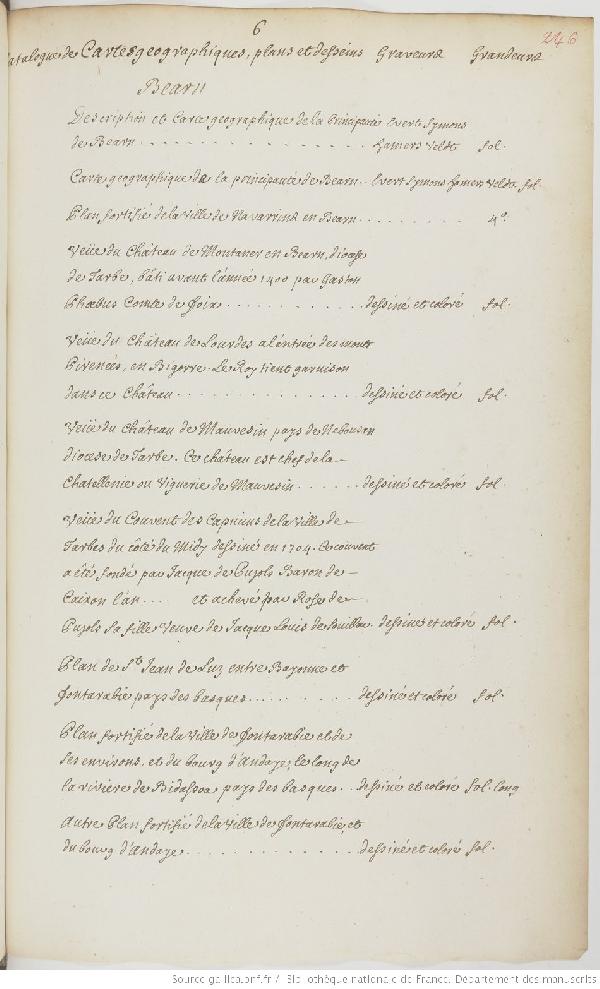 6
246
Catalogue de Cartes geographiques, plans et desseins Graveurs Grandeurs
Bearn
Description et Carte geographique de la Principauté Evert Symons
de Bearn . . . . . . . . . . . . . . . . Hamers Veldt fol.
Carte geographique de la principauté de Bearn . . Evert Symons Hamers Veldt fol.
Plan fortifié de la Ville de Navarrins en Bearn . . . . . . . . 4°.
Veüe du Château de Montaner en Bearn, diocese
de Tarbe, bâti avant l'année 1400 par Gaston
Phoebus Comte de foix . . . . . . . . . . dessiné et coloré fol.
Veüe du Château de Lourdes a l'entrée des monts
Pirenées, en Bigorre. Le Roy tient garnison
dans ce Château . . . . . . . . . . . . . . dessiné et coloré fol.
Veüe du château de Mauvesin pays de Nebousan
diocese de Tarbe. Ce château est chef de la
Chatellenie ou Viguerie de Mauvesin . . . . . . dessiné et coloré fol.
Veüe du Couvent des Capucins de la Ville de
Tarbes du côté du Midy dessiné en 1704. Ce couvent
a été fondé par Jacque de Pujols Baron de
l'an . . . et achevé par Rose de
Pujols sa fille Veuve de Jacque Louis de dessiné et coloré fol.
Plan de St. Jean de Luz entre Bayonne et
fontarabie pays des basques . . . . . . . . . dessiné et coloré fol.
Plan fortifié de la Ville de fontarabie et de
ses environs, et du bourg d'Andaye, le long de
la riviere de Bidassoa pays des basques . . dessiné et coloré fol. long
Autre Plan fortifié de la Ville de fontarabie, et
du bourg d'Andaye . . . . . . . . . . . . . dessiné et coloré fol.
Source gallica.bnf.fr / Bibliothèque nationale de France. Département des manuscrits